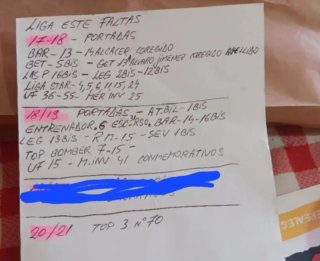 LIGA ESTE FALTAS
17-18 - PORTADAS
BAR - 13 - 14 ALCACER COREGIDO
BET - 5BIS - GET 13 ALVARO JIMENEZ COREGIDO APELLIDO
LAS P 16BIS - LEG 2BIS - 12BIS
LIGA STAR - 4, 5, 6, 11, 15, 24
UF 36-55 - MER INV 25
18/19 PORTADAS - AT.BIL - 1BIS
ENTRENADOR 6 BAR - 14-16BIS
LEG 13BIS - R M - 15 - SEV 1BIS
TOP BOMBER 7-15 -
UF 15 - M.INV 41 CONMEMORATIVOS
20/21 TOP 3 Nº 70